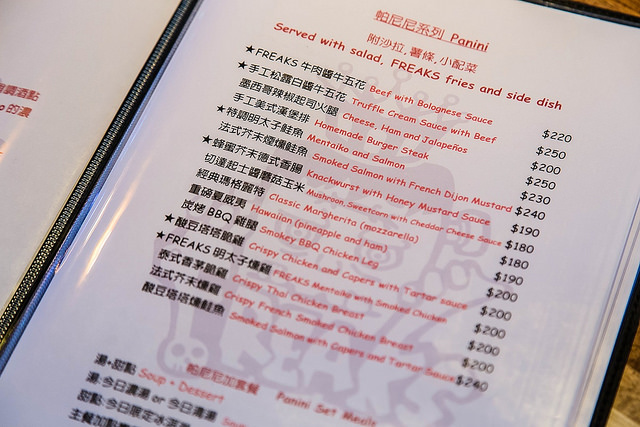 帕尼尼系列 Panini
附沙拉, 薯條, 小配菜
Served with salad, FREAKS fries and side dish
★FREAKS 牛肉醬牛五花 Beef with Bolognese Sauce $220
★手工松露白醬牛五花 Truffle Cream Sauce with Beef $250
墨西哥辣椒起司火腿 Cheese, Ham and Jalapeños $200
手工美式漢堡排 Homemade Burger Steak $250
★特調明太子鮭魚 Mentaiko and Salmon $230
法式芥末煙燻鮭魚 Smoked Salmon with French Dijon Mustard $240
★蜂蜜芥末德式香腸 Knackwurst with Honey Mustard Sauce $190
切達起士醬蘑菇玉米 Mushroom, Sweetcorn with Cheddar Cheese Sauce $180
經典瑪格麗特 Classic Margherita (mozzarella) $180
重磅夏威夷 Hawaiian (pineapple and ham) $190
炭烤 BBQ 雞腿 Smokey BBQ Chicken Leg $200
★酸豆塔塔脆雞 Crispy Chicken and Capers with Tartar sauce $200
★FREAKS 明太子燻雞 FREAKS Mentaiko with Smoked Chicken $200
泰式香茅脆雞 Crispy Thai Chicken Breast $200
法式芥末燻雞 Crispy French Smoked Chicken Breast $200
酸豆塔塔燻鮭魚 Smoked Salmon with Capers and Tartar Sauce $240
帕尼尼加套餐 Panini Set Meals
湯+甜點 Soup + Dessert
湯:今日濃湯 or 今日清湯
甜點:今日限定冰淇淋
主餐加點
調酒點
的濃
FREAKS